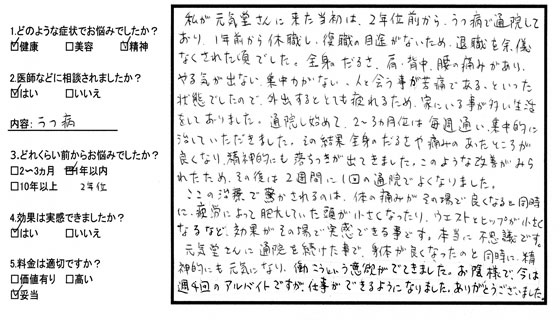 1.どのような症状でお悩みでしたか?
☑健康 □美容 ☑精神
2.医師などに相談されましたか?
☑はい □いいえ
内容:うつ病
3.どれくらい前からお悩みでしたか?
□2〜3カ月 □半年以内
□10年以上 2年位
4.効果は実感できましたか?
☑はい □いいえ
5.料金は適切ですか?
□価値有り □高い
☑妥当
私が元気堂さんに来た当初は、2年位前から、うつ病で通院して
おり、1年前から休職し、復職の目途がないため、退職を余儀
なくされた頃でした。全身のだるさ、肩、背中、腰の痛みがあり、
やる気が出ない、集中力がない、人と会う事が苦痛である、といった
状態でしたので、外出するととても疲れるため、家にいる事が多い生活
をしておりました。通院し始めて、2〜3ヶ月位は毎週通い、集中的に
治していただきました。その結果全身のだるさや痛みのあったところが
良くなり、精神的にも落ちつきが出てきました。このような改善がみら
れたため、その後は2週間に1回の通院でよくなりました。
ここの治療で驚かされるのは、体の痛みがその場で良くなると同時
に、疲労によって肥大していた頭が小さくなったり、ウエストとヒップが小さく
なるなど、効果がその場で実感できる事です。本当に不思議です。
元気堂さんに通院を続けた事で、身体が良くなったのと同時に、精
神的にも元気になり、働こうという意欲がでてきました。お陰様で、今は
週4回のアルバイトですが、仕事ができるようになりました。ありがとうございました。